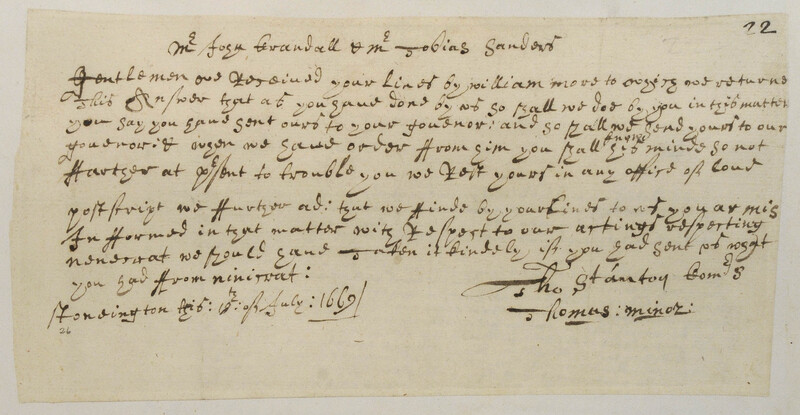 22
Mr John Crandall & Mr Tobias Sanders
Gentlemen we Received your Lines by william more to which we returne
This Answer that as you have done by us so shall we doe by you in this matter
you say you have sent ours to your govenor: and so shall we send yours to our
govenor & when we have order ffrom him you shall know his minde so not
ffarther at psent to trouble you we Rest yours in any office of love
postscript we ffurther ad: that we ffinde by your Lines to us you ar mis
In fformed in that matter with Respect to our actings respecting
nenecrat we should have Taken it kindely if you had sent us what
you had ffrom ninicrat:
Tho Stanton Comds
Stoneington this: of July: 1669
Thomas: minor: